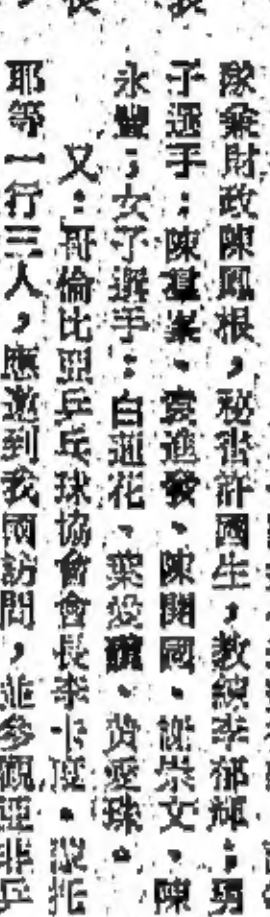 隊兼財政陳鳳根，秘書許國生，教練李郁輝；男
子選手：陳、雲進發、陳開國、謝崇文、陳
永豐；女子選手：白蓮花、葉、黃愛珠。
又：哥倫比亞乒乓球協會會長李卡度•托
耶等一行三人，應邀到我國訪問，並參觀亞非乒